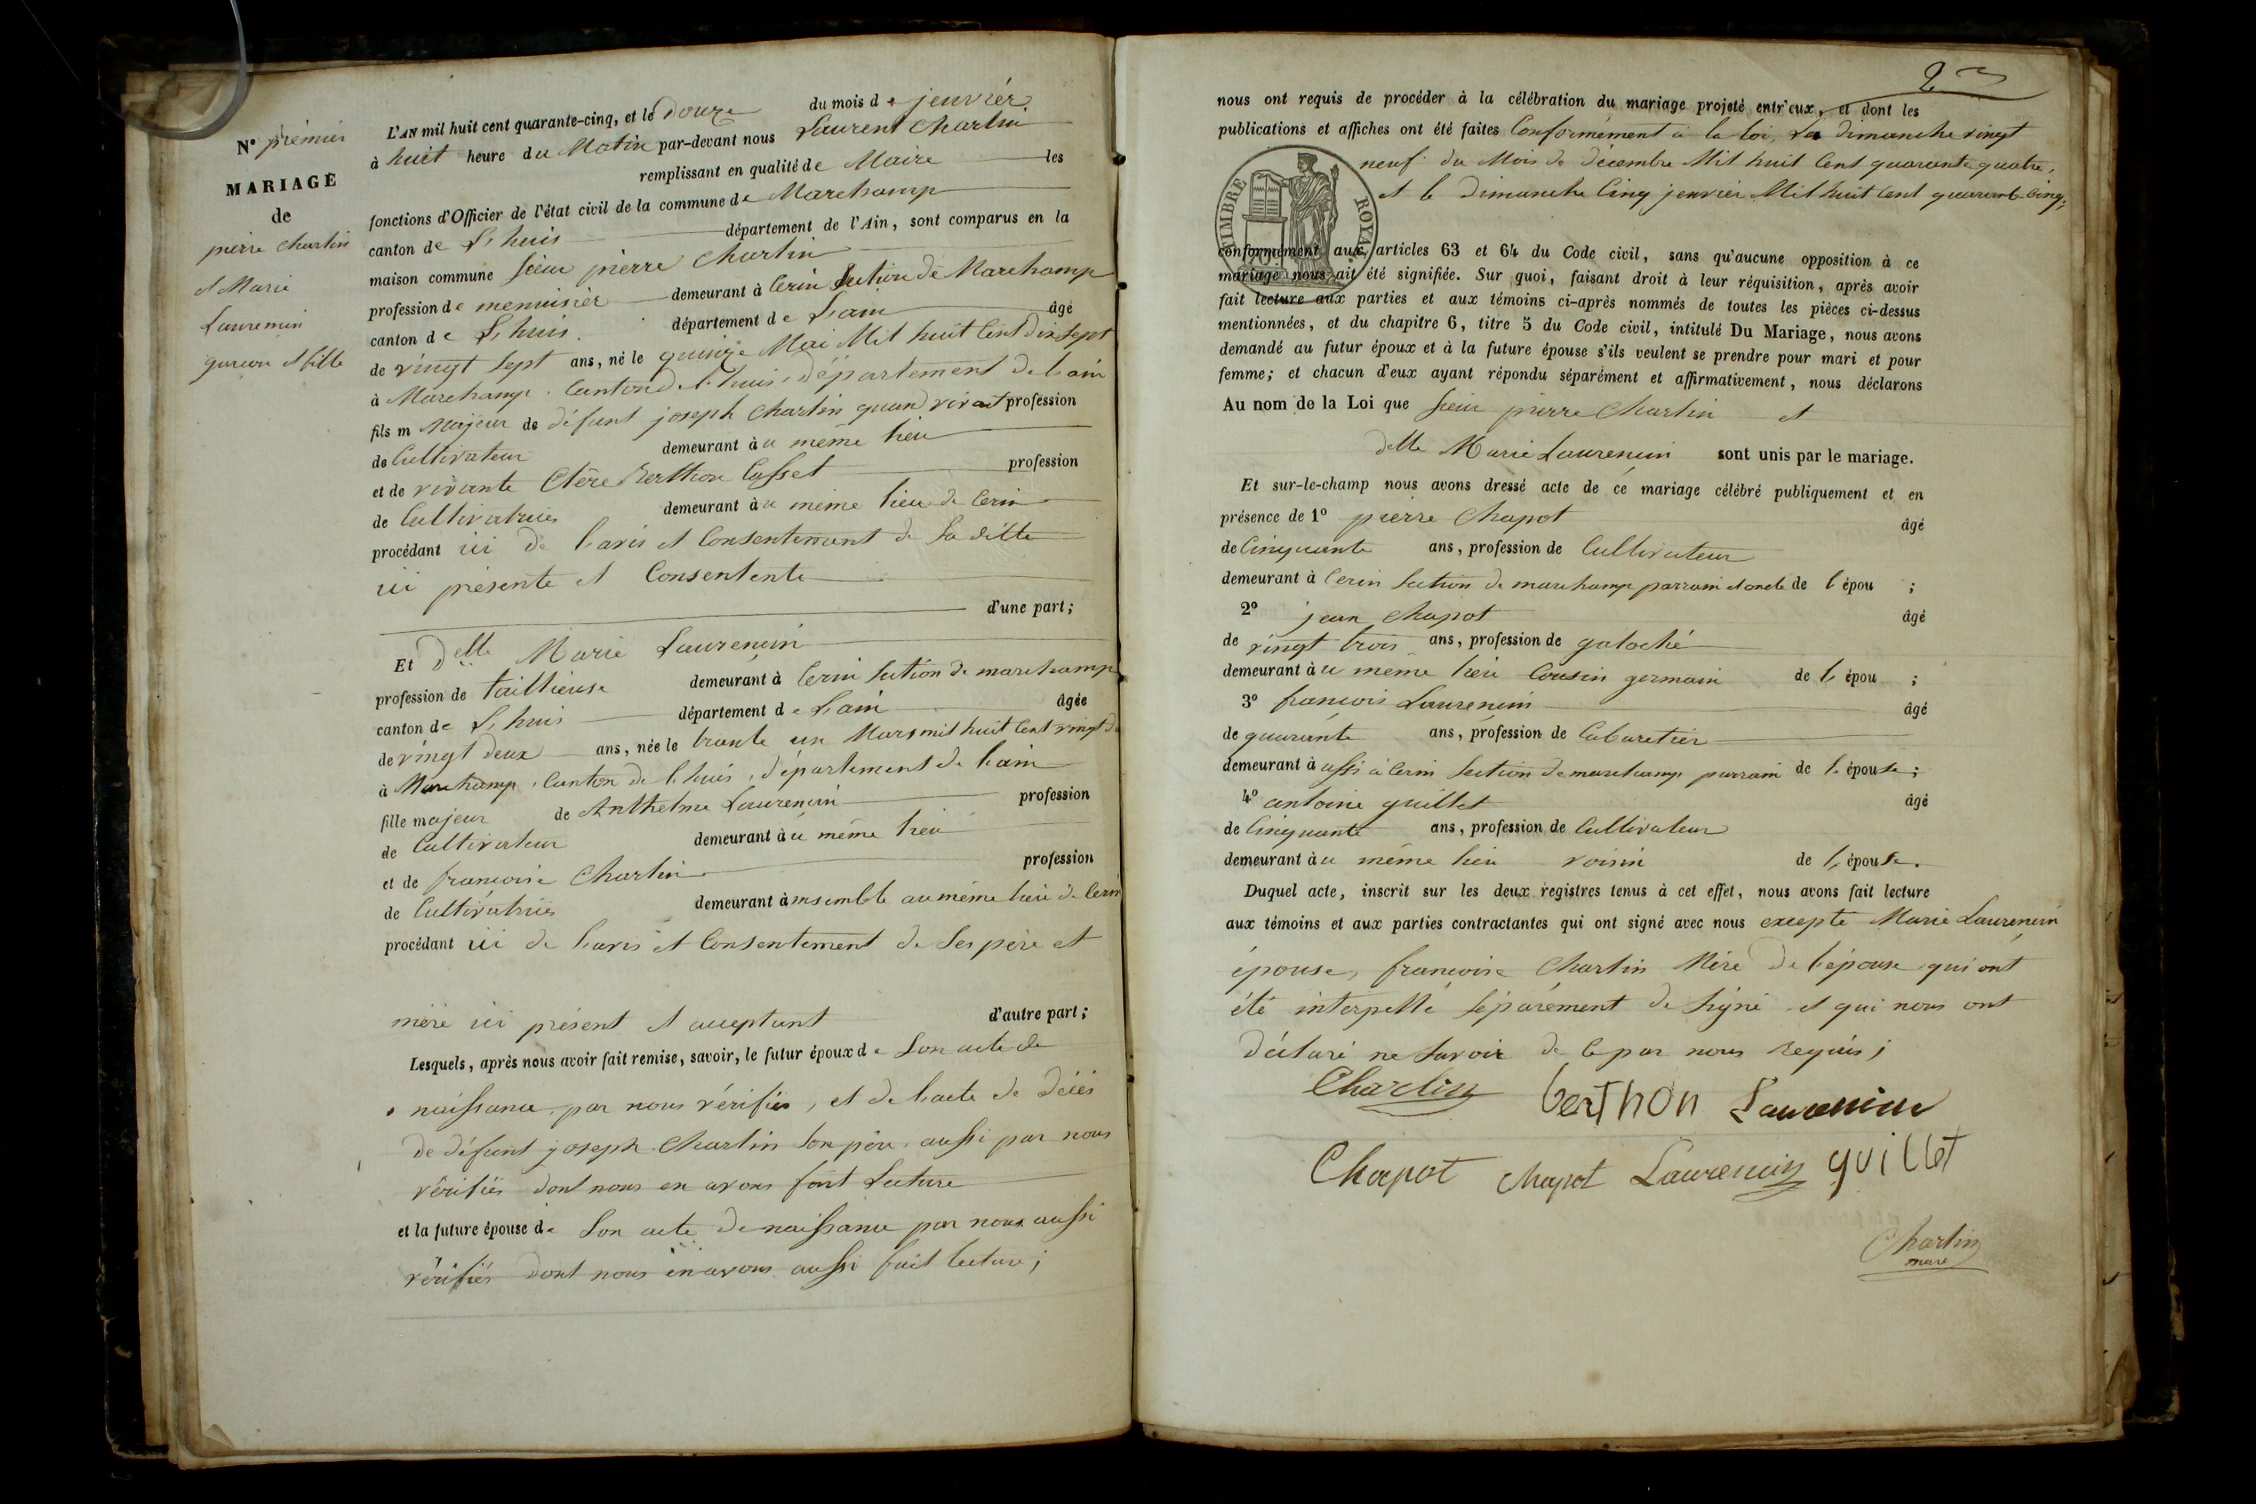 N° premier
MARIAGE
de
pierre Charlin
et Marie
Laurencin
garcon et fille
L'AN mil huit cent quarante-cinq, et le Douze du mois de jenvier
à huit heure du Matin par-devant nous Laurent Charlin
remplissant en qualité de Maire les
fonctions d'Officier de l'état civil de la commune de Marchamp
canton de L'huis département de l'Ain, sont comparus en la
maison commune sieur pierre Charlin
profession de menuisier demeurant à Cerin section de Marchamp
canton de L'huis. département de L'ain âgé
de vingt sept ans, né le quinze Mai Mil huit Cent Dix sept
à Marchamp. Canton de l'huis, département de l'ain
fils m Majeur de défunt joseph Charlin quand vivait profession
de Cultivateur demeurant à u même lieu
et de vivante Clére Berthon Cosset profession
de Cultivatrices demeurant à u même lieu de Cerin
procédant ici de l'avis et Consentement de Sa ditte
ici présente et Consentente
d'une part;
Et Delle Marie Laurencin
profession de taillieuse demeurant à Cerin section de marchamp
canton de L'huis département de L'ain âgée
de vingt deux ans, née le trante un Mars mil huit Cent vingt d
à Marchamp, Canton de l'huis, département de l'ain
fille majeur de Anthelme Laurencin profession
de Cultivateur demeurant à u même lieu
et de francoise Charlin profession
de Cultivatrices demeurant à ensemble au même lieu de Cerin
procédant ici de l'avis et Consentement de Ses père et
mère ici présent et acceptant d'autre part;
Lesquels, après nous avoir fait remise, savoir, le futur époux de Son acte de
naissance, par nous vérifiés, et de l'acte de décès
de défunt joseph Charlin Son père aussi par nous
vérifiés dont nous en avons fait Lecture
et la future épouse de Son acte de naissance par nous aussi
vérifiés dont nous en avons aussi fait lecture;
2
nous ont requis de procéder à la célébration du mariage projeté entr'eux, et dont les
publications et affiches ont été faites Conformément à la loi, Le dimanche vingt
neuf du Mois de décembre Mil huit Cent quarante quatre,
et le dimanche Cinq jenvier Mil huit Cent quarante Cinq;
TIMBRE ROYAL
conformément aux articles 63 et 64 du Code civil, sans qu'aucune opposition à ce
mariage nous ait été signifiée. Sur quoi, faisant droit à leur réquisition, après avoir
fait lecture aux parties et aux témoins ci-après nommés de toutes les pièces ci-dessus
mentionnées, et du chapitre 6, titre 5 du Code civil, intitulé Du Mariage, nous avons
demandé au futur époux et à la future épouse s'ils veulent se prendre pour mari et pour
femme; et chacun d'eux ayant répondu séparément et affirmativement, nous déclarons
Au nom de la Loi que sieur pierre Charlin et
delle Marie Laurencin sont unis par le mariage.
Et sur-le-champ nous avons dressé acte de ce mariage célébré publiquement et en
présence de 1° pierre Chapot âgé
de Cinquante ans, profession de Cultivateur
demeurant à Cerin Section de marchamp parrain et oncle de l'épou ;
2° jean Chapot âgé
de vingt trois ans, profession de galoché
demeurant à u même lieu Cousin germain de l'épou ;
3° francois Laurencin âgé
de quarante ans, profession de Cabaretier
demeurant à ussi à Cerin Section de marchamp parrain de l'épouse;
4° antoine guillet âgé
de Cinquante ans, profession de Cultivateur
demeurant à u même lieu voisin de l'épouse.
Duquel acte, inscrit sur les deux registres tenus à cet effet, nous avons fait lecture
aux témoins et aux parties contractantes qui ont signé avec nous excepté Marie Laurencin
épouse, francoise Charlin Mère de l'épouse qui ont
été interpellé séparément de signé et qui nous ont
déclaré ne savoir de ce par nous requis;
Charlin berthon Laurencin
Chapot Chapot Laurencin guillet
Charlin
maire